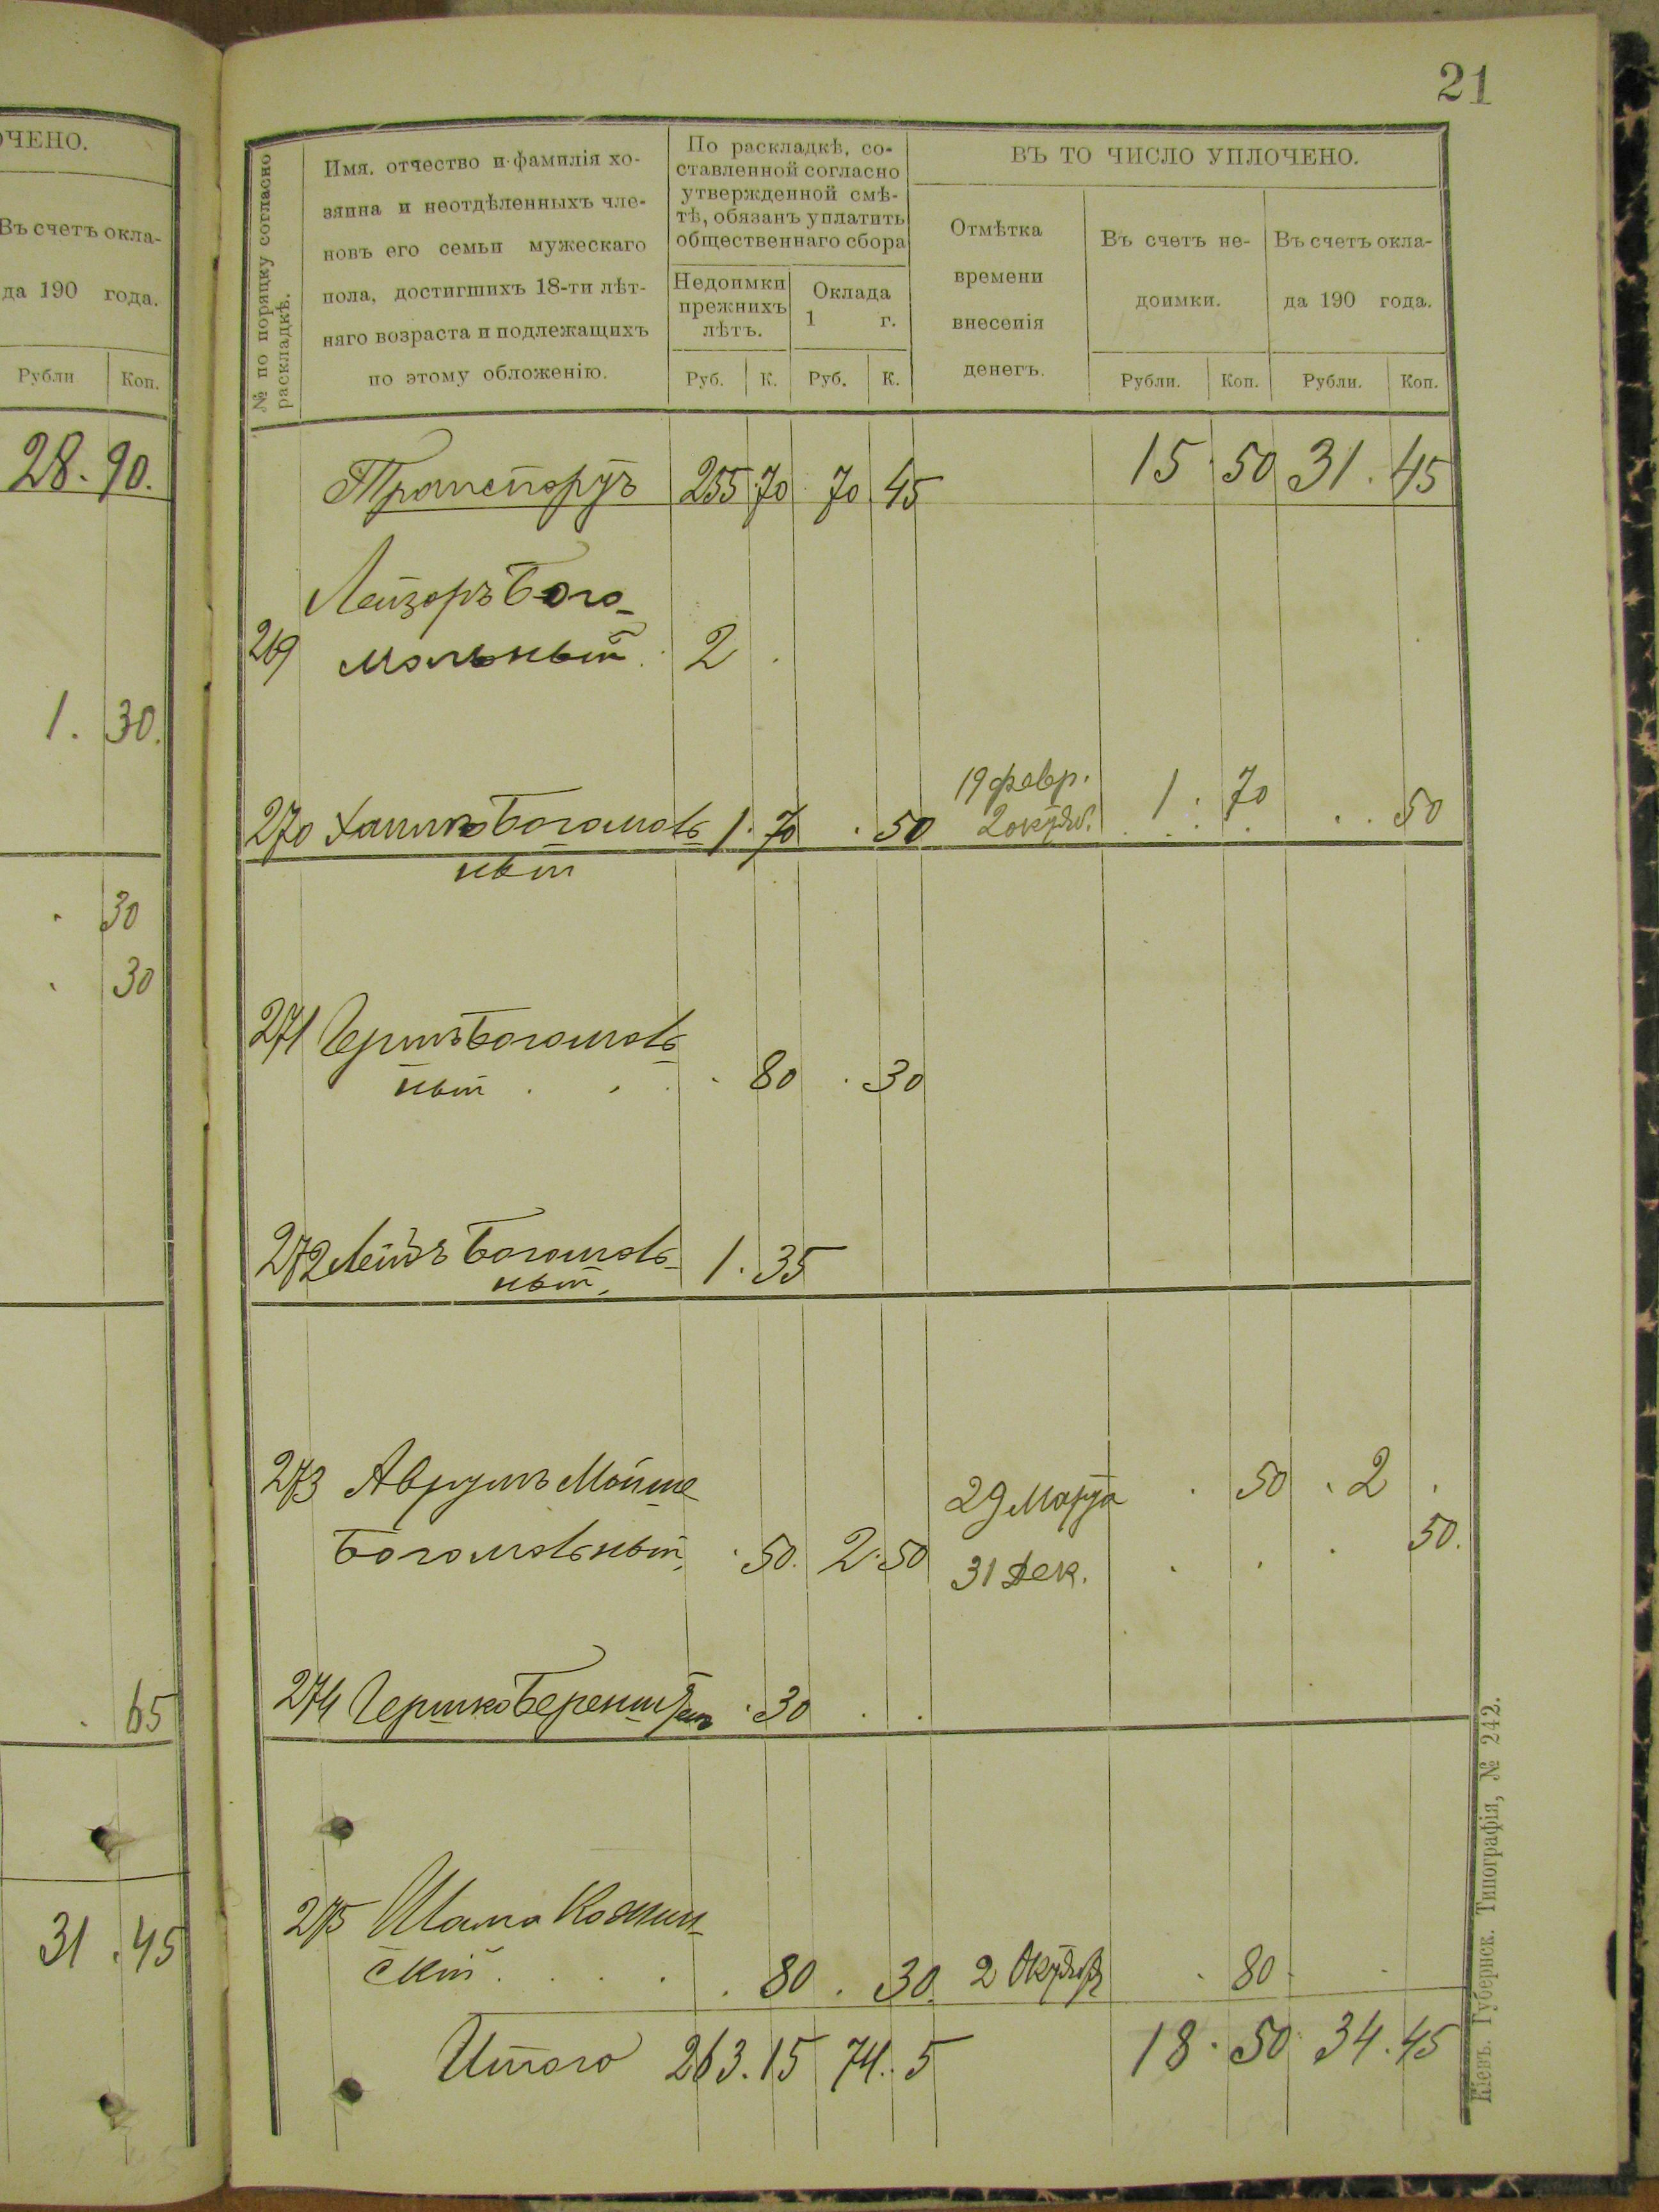 ОЧЕНО.
Въ счетъ окла-
да 190 года.
Рубли Коп.
28. 90.
1. 30.
. 30
. 30
. 65
31. 45
21
№ по порядку согласно
раскладкѣ.
Имя, отчество и фамилія хо-
зяина и неотдѣленныхъ чле-
новъ его семьи мужескаго
пола, достигшихъ 18-ти лѣт-
няго возраста и подлежащихъ
по этому обложенію.
По раскладкѣ, со-
ставленной согласно
утвержденной смѣ-
тѣ, обязанъ уплатить
общественнаго сбора
Недоимки
прежнихъ
лѣтъ.
Оклада
1 г.
Руб. К. Руб. К.
Отмѣтка
времени
внесенія
денегъ.
ВЪ ТО ЧИСЛО УПЛОЧЕНО.
Въ счетъ не-
доимки.
Въ счетъ окла-
да 190 года.
Рубли. Коп. Рубли. Коп.
Транспортъ 255 70 70 45 15 50 31. 45
Лейзоръ Бого-
269 мольный. 2 .
19 февр. 1. 70
270 Хаимъ Богомоль- 1. 70 . 50 2 октяб. . . . . . 50
ный
271 Гершъ Богомоль-
ный . . . 80 . 30
272 Лейзъ Богомоль- 1. 35
ный.
273 Аврумъ Мойше 29 Марта . 50 . 2 .
Богомольный. . 50. 2. 50 31 Дек. . . . 50.
274 Гершко Беренштейнъ . 30 . .
275 Шама
скій . . . . 80 . 30. 2 Октября . 80 .
Итого 263. 15 74. 5 18. 50 34. 45
Кіевъ. Губернск. Типографія, № 242.